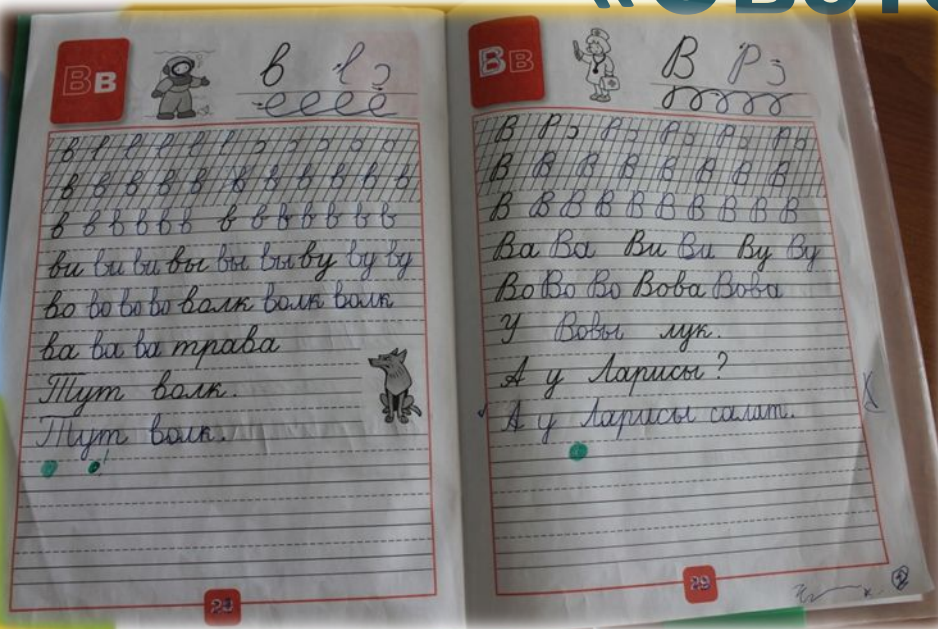 Вв
в
в в в в в в в в в в
в в в в в в в в в в в в
ви ви ви вы вы вы ву ву ву
во во во во волк волк волк
ва ва ва трава
Тут волк.
Тут волк.
Вв
В
В В В В В В В В В
В В В В В В В В В В
Ва Ва Ви Ви Ву Ву
Во Во Во Вова Вова
У Вовы лук.
А у Ларисы?
А у Ларисы салат.
29